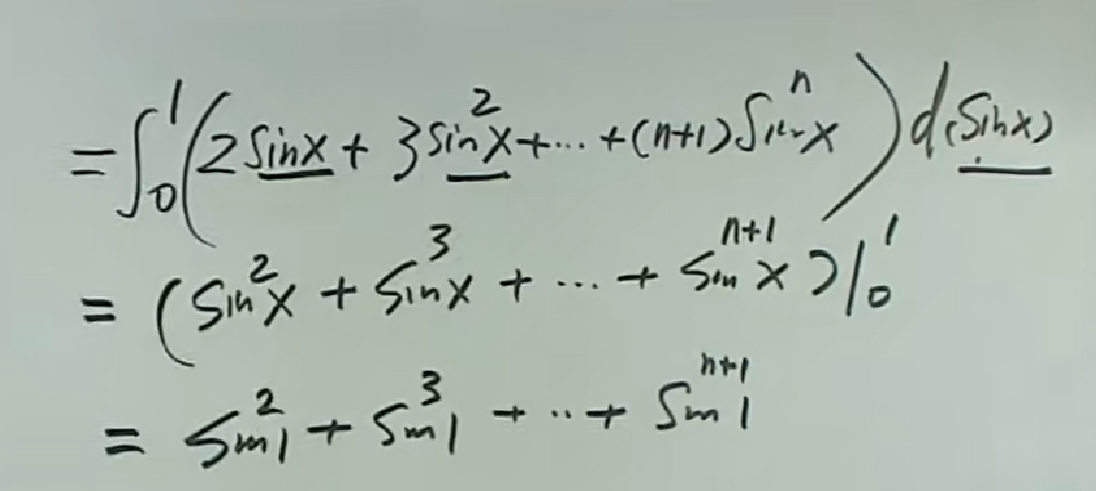 = ∫₀¹ (2 sinx + 3 sin²x + ... + (n+1) sinⁿx) d(sinx)
= (sin²x + sin³x + ... + sinⁿ⁺¹x)|₀¹
= sin²1 + sin³1 + ... + sinⁿ⁺¹1